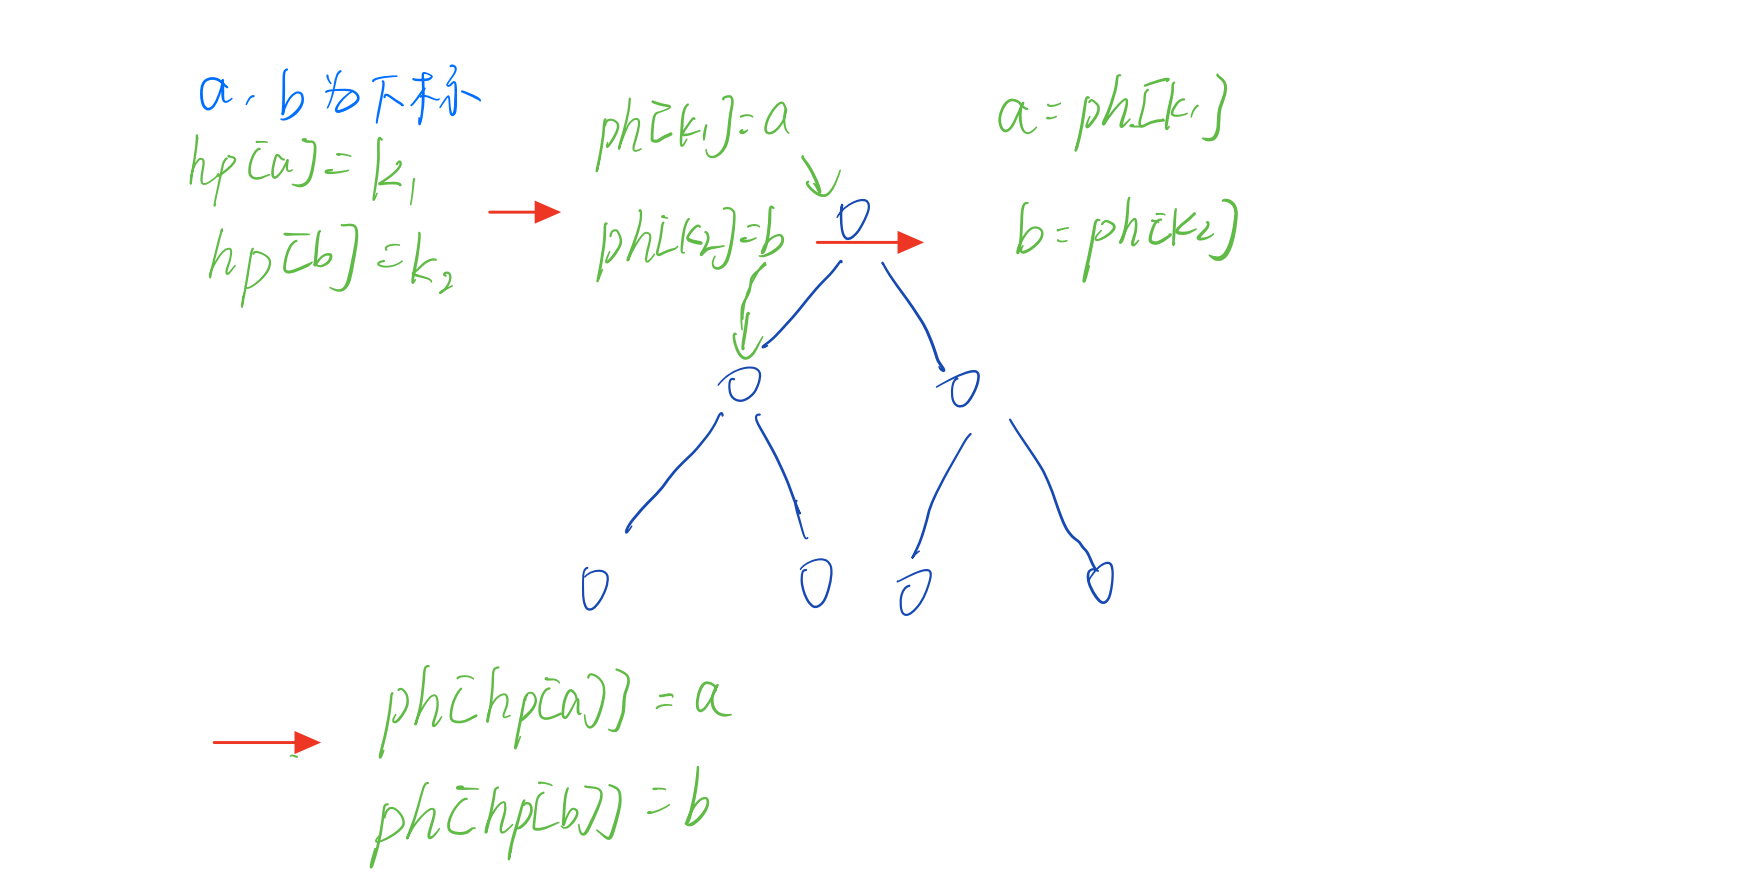 a、b为下标
hp[a]=k₁
hp[b]=k₂
ph[k₁]=a
ph[k₂]=b
a=ph[k₁]
b=ph[k₂]
ph[hp[a]]=a
ph[hp[b]]=b